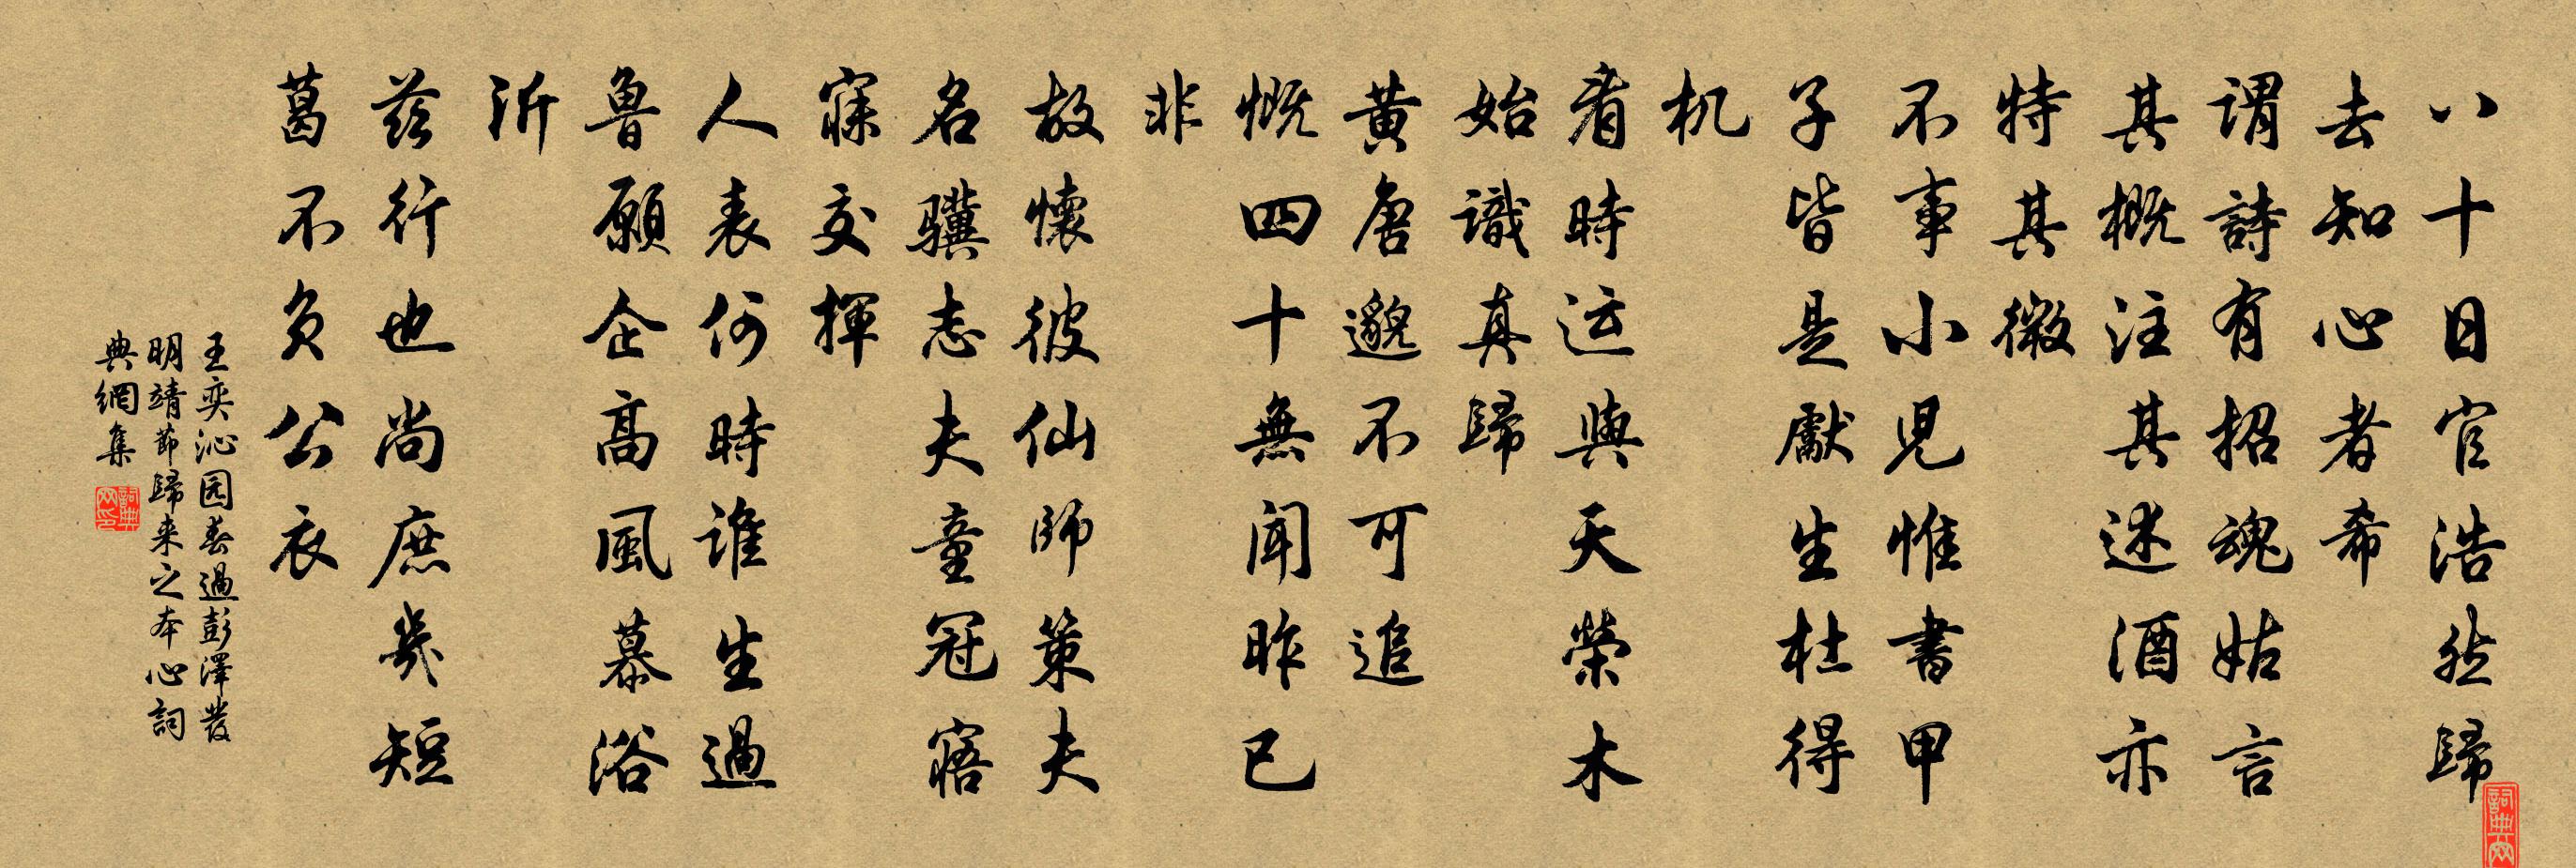 八十日官浩然歸
去知心者希
謂詩有招魂姑言
其概注其述酒亦
特其微
不事小児惟書甲
子皆是獻生杜得
机
看時运與天榮木
始識真歸
黄唐邈不可追
慨四十無聞昨已
非
故懷彼仙師策夫
名驥志夫童冠寤
寐交揮
人表何時谁生過
魯願企高風慕浴
沂
兹行也尚庶幾短
葛不负公衣
王奕沁园春過彭澤發
明靖节歸来之本心詞
典網集
詞典網印
詞典网